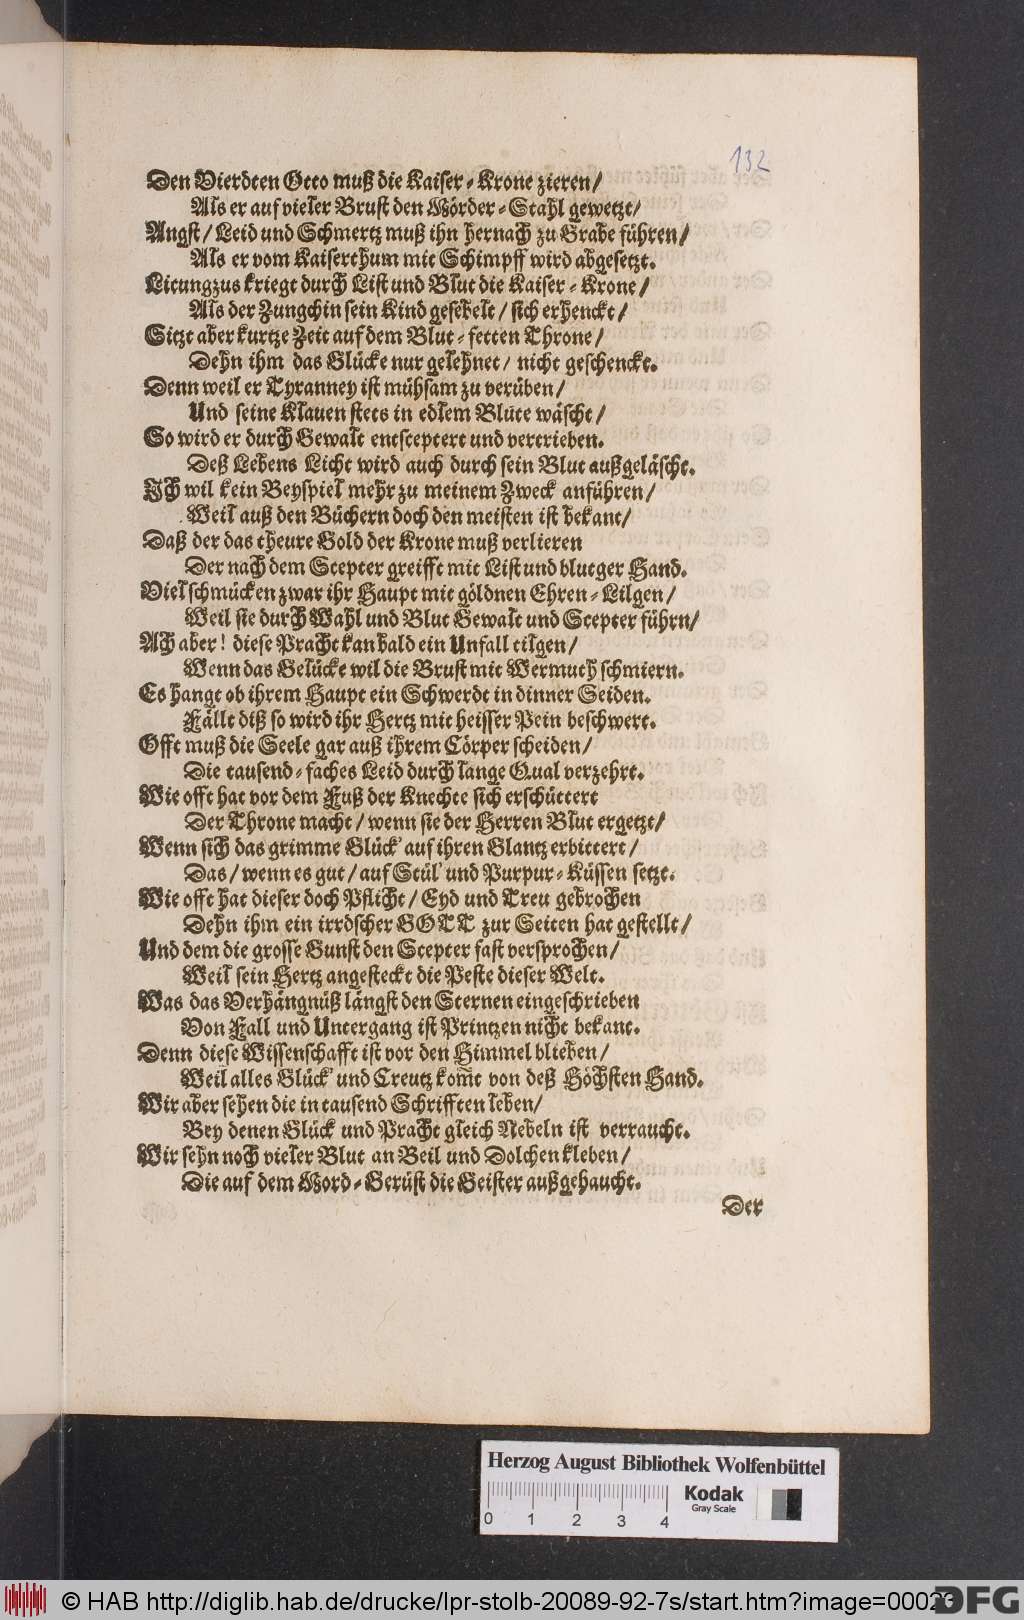 132
Den Vierdten Otto muß die Kaiser-Krone zieren/
Als er auf vieler Brust den Mörder-Stahl gewetzt/
Angst/ Leid und Schmertz muß ihn hernach zu Grabe führen/
Als er vom Kaiserthum mit Schimpff wird abgesetzt.
Licungzus kriegt durch List und Blut die Kaiser-Krone/
Als der Zungchin sein Kind gesebelt/ sich erhenckt/
Sitzt aber kurtze Zeit auf dem Blut-fetten Throne/
Dehn ihm das Glücke nur gelehnet/ nicht geschenckt.
Denn weil er Tyranney ist mühsam zu verüben/
Und seine Klauen stets in edlem Blute wäscht/
So wird er durch Gewalt entsceptert und vertrieben.
Deß Lebens Licht wird auch durch sein Blut außgeläscht.
Ich wil kein Beyspiel mehr zu meinem Zweck anführen/
Weil auß den Büchern doch den meisten ist bekant/
Daß der das theure Gold der Krone muß verlieren
Der nach dem Scepter greifft mit List und blutger Hand.
Viel schmücken zwar ihr Haupt mit göldnen Ehren-Lilgen/
Weil sie durch Wahl und Blut Gewalt und Scepter führn/
Ach aber! diese Pracht kan bald ein Unfall tilgen/
Wenn das Gelücke wil die Brust mit Wermuth schmiern.
Es hangt ob ihrem Haupt ein Schwerdt in dinner Seiden.
Fällt diß so wird ihr Hertz mit heisser Pein beschwert.
Offt muß die Seele gar auß ihrem Cörper scheiden/
Die tausend-faches Leid durch lange Qual verzehrt.
Wie offt hat vor dem Fuß der Knechte sich erschüttert
Der Throne macht/ wenn sie der Herren Blut ergetzt/
Wenn sich das grimme Glück auf ihren Glantz erbittert/
Das/ wenn es gut/ auf Stül und Purpur-Küssen setzt.
Wie offt hat dieser doch Pflicht/ Eyd und Treu gebrochen
Dehn ihm ein irrdscher GOTT zur Seiten hat gestellt/
Und dem die grosse Gunst den Scepter fast versprochen/
Weil sein Hertz angesteckt die Peste dieser Welt.
Was das Verhängnüß längst den Sternen eingeschrieben
Von Fall und Untergang ist Printzen nicht bekant.
Denn diese Wissenschafft ist vor den Himmel blieben/
Weil alles Glück und Creutz kom̃t von deß Höchsten Hand.
Wir aber sehen die in tausend Schrifften leben/
Bey denen Glück und Pracht gleich Nebeln ist verraucht.
Wir sehn noch vieler Blut an Beil und Dolchen kleben/
Die auf dem Mord-Gerüst die Geister außgehaucht.
Der
Herzog August Bibliothek Wolfenbüttel
Kodak
Gray Scale
0 1 2 3 4
© HAB http://diglib.hab.de/drucke/lpr-stolb-20089-92-7s/start.htm?image=00023
DFG